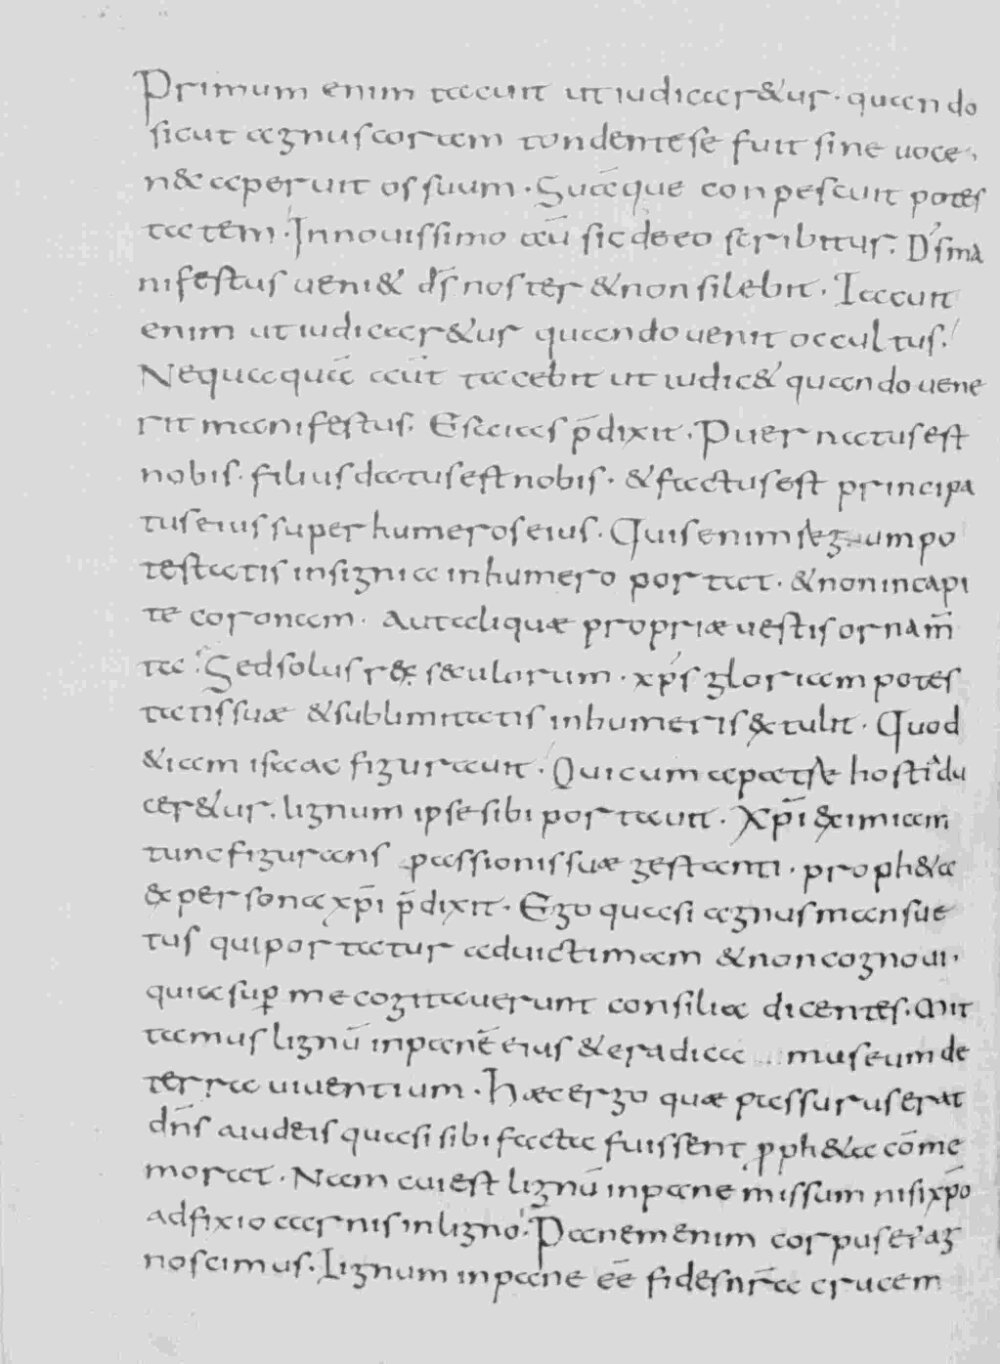 Primum enim tacuit ut iudicaretur. quando
sicut agnus coram tondente se fuit sine uoce,
n& aperuit os suum. Suāque conpescuit potes
tatem. In nouissimo aū sic de eo scribitur. D̄s ma
nifestus ueni& d̄s noster & non silebit. Tacuit
enim ut iudicar&ur quando uenit occultus.
Nequaquā aūt tacebit ut iudic& quando uene
rit manifestus. Esaias p̄dixit. Puer natus est
nobis. filius datus est nobis. & factus est principa
tus eius super humeros eius. Quis enim regum po
testatis insignia in humero portat. & non in capi
te coronam. aut aliquæ propriæ uestis ornam̄
ta. Sed solus rex sæculorum. xp̄s gloriam potes
tatis suæ & sublimitatis in humeris extulit. Quod
& iam isaac figurauit. Qui cum a patre hosti du
cer&ur. lignum ipse sibi portauit. Xp̄i exim iam
tunc figurans passionis suæ gestanti. proph&a
ex persona xp̄i p̄dixit. Ego quasi agnus mansue
tus qui portatur ad uictimam & non cognoui.
quia sup̲ me cogitauerunt consilia dicentes. Mit
tamus lignū in panē eius & eradica mus eum de
terra uiuentium. Hæc ergo quæ passurus erat
dn̄s a iudeis quasi sibi facta fuissent ꝓph&a cōme
morat. Nam cui est lignū in pane missum nisi xp̄o
adfixio carnis in ligno. Panem enim corpus ei' ag
noscimus. Lignum in pane eē fides nr̄a crucem